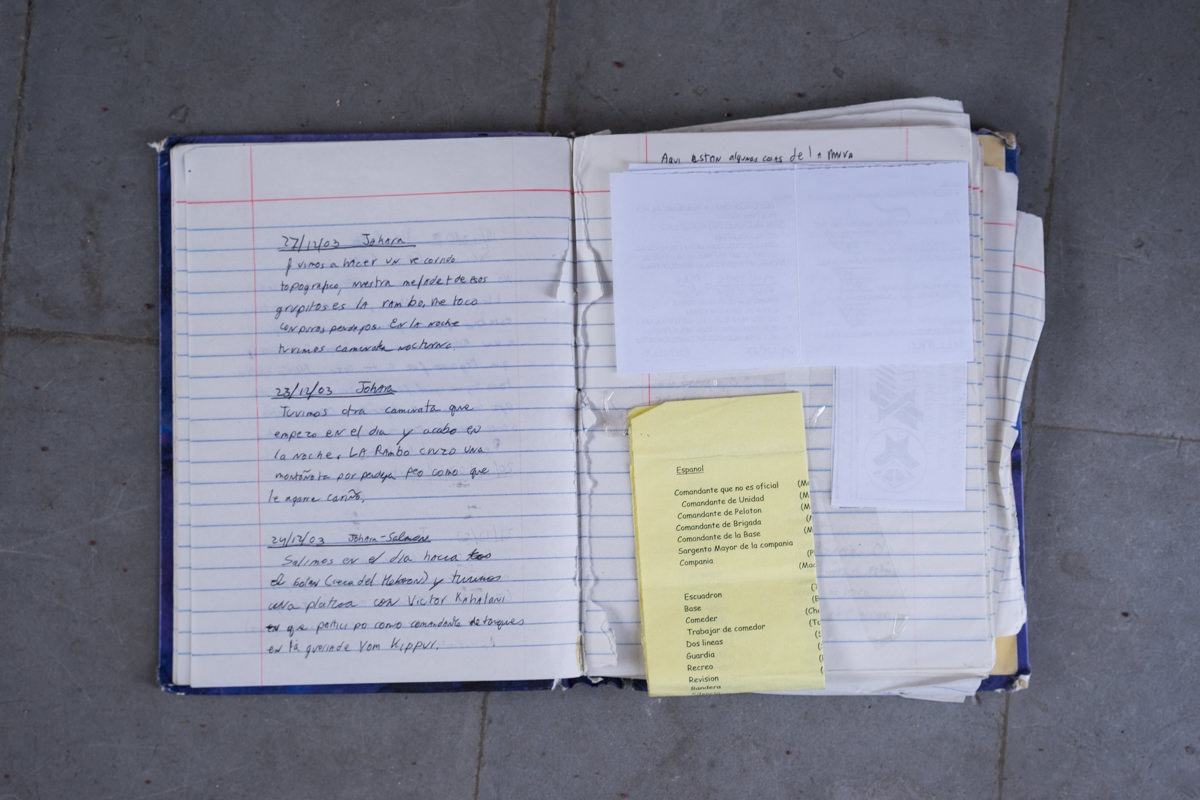 27/12/03 Johara
Fuimos a hacer un recorrido
topografico, nuestra me de
grupitos es LA rambo, me toco
con puros pendejos. En la noche
tuvimos caminata nocturna.
23/12/03 Johara
Tuvimos otra caminata que
empezo en el dia y acabo en
la noche. LA Rambo cruzo una
montañota por pendeja peo como que
le agarre cariño.
24/12/03 Johara-Salmone
Salimos en el dia hacia
el Golan (cerca del Hebron) y tuvimos
una platica con Victor Kahalani
que participo como comandante de tanques
en la guerra de Yom Kippur.
Aqui estan algunas cosas de la
Espanol
Comandante que no es oficial (Ma
Comandante de Unidad (M
Comandante de Peloton (M
Comandante de Brigada (
Comandante de la Base (M
Sargento Mayor de la compania
Compania (P
(Mac
Escuadron (
Base (B
Comeder (Che
Trabajar de comedor (To
Dos lineas (S
Guardia (
Recreo (
Revision (
Bandera